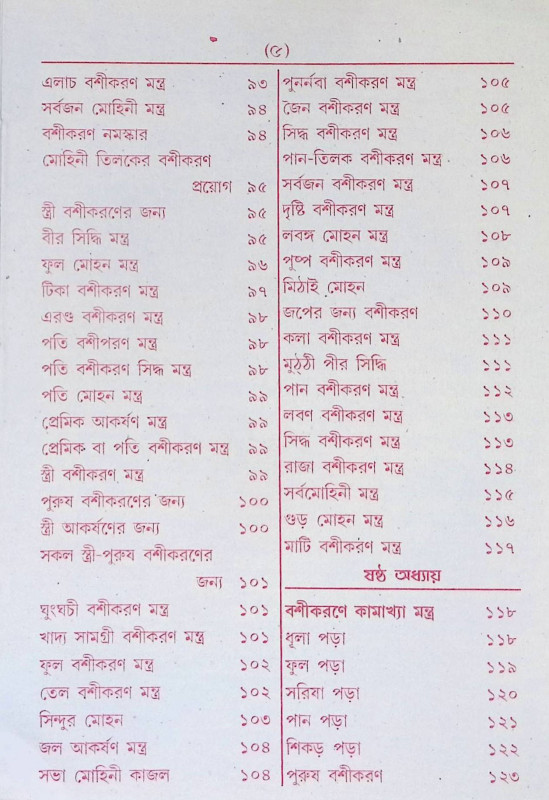 (৫)
এলাচ বশীকরণ মন্ত্র ৯৩
সর্বজন মোহিনী মন্ত্র ৯৪
বশীকরণ নমস্কার ৯৪
মোহিনী তিলকের বশীকরণ
প্রয়োগ ৯৫
স্ত্রী বশীকরণের জন্য ৯৫
বীর সিদ্ধি মন্ত্র ৯৫
ফুল মোহন মন্ত্র ৯৬
টিকা বশীকরণ মন্ত্র ৯৭
এরণ্ড বশীকরণ মন্ত্র ৯৮
পতি বশীপরণ মন্ত্র ৯৮
পতি বশীকরণ সিদ্ধ মন্ত্র ৯৮
পতি মোহন মন্ত্র ৯৯
প্রেমিক আকর্ষণ মন্ত্র ৯৯
প্রেমিক বা পতি বশীকরণ মন্ত্র ৯৯
স্ত্রী বশীকরণ মন্ত্র ৯৯
পুরুষ বশীকরণের জন্য ১০০
স্ত্রী আকর্ষণের জন্য ১০০
সকল স্ত্রী-পুরুষ বশীকরণের
জন্য ১০১
ঘুংঘচী বশীকরণ মন্ত্র ১০১
খাদ্য সামগ্রী বশীকরণ মন্ত্র ১০১
ফুল বশীকরণ মন্ত্র ১০২
তেল বশীকরণ মন্ত্র ১০২
সিন্দুর মোহন ১০৩
জল আকর্ষণ মন্ত্র ১০৪
সভা মোহিনী কাজল ১০৪
পুনর্নবা বশীকরণ মন্ত্র ১০৫
জৈন বশীকরণ মন্ত্র ১০৫
সিদ্ধ বশীকরণ মন্ত্র ১০৬
পান-তিলক বশীকরণ মন্ত্র ১০৬
সর্বজন বশীকরণ মন্ত্র ১০৭
দৃষ্টি বশীকরণ মন্ত্র ১০৭
লবঙ্গ মোহন মন্ত্র ১০৮
পুষ্প বশীকরণ মন্ত্র ১০৯
মিঠাই মোহন ১০৯
জপের জন্য বশীকরণ ১১০
কলা বশীকরণ মন্ত্র ১১১
মুঠ্ঠী পীর সিদ্ধি ১১১
পান বশীকরণ মন্ত্র ১১২
লবণ বশীকরণ মন্ত্র ১১৩
সিদ্ধ বশীকরণ মন্ত্র ১১৩
রাজা বশীকরণ মন্ত্র ১১৪
সর্বমোহিনী মন্ত্র ১১৫
গুড় মোহন মন্ত্র ১১৬
মাটি বশীকরণ মন্ত্র ১১৭
ষষ্ঠ অধ্যায়
বশীকরণে কামাখ্যা মন্ত্র ১১৮
ধূলা পড়া ১১৮
ফুল পড়া ১১৯
সরিষা পড়া ১২০
পান পড়া ১২১
শিকড় পড়া ১২২
পুরুষ বশীকরণ ১২৩